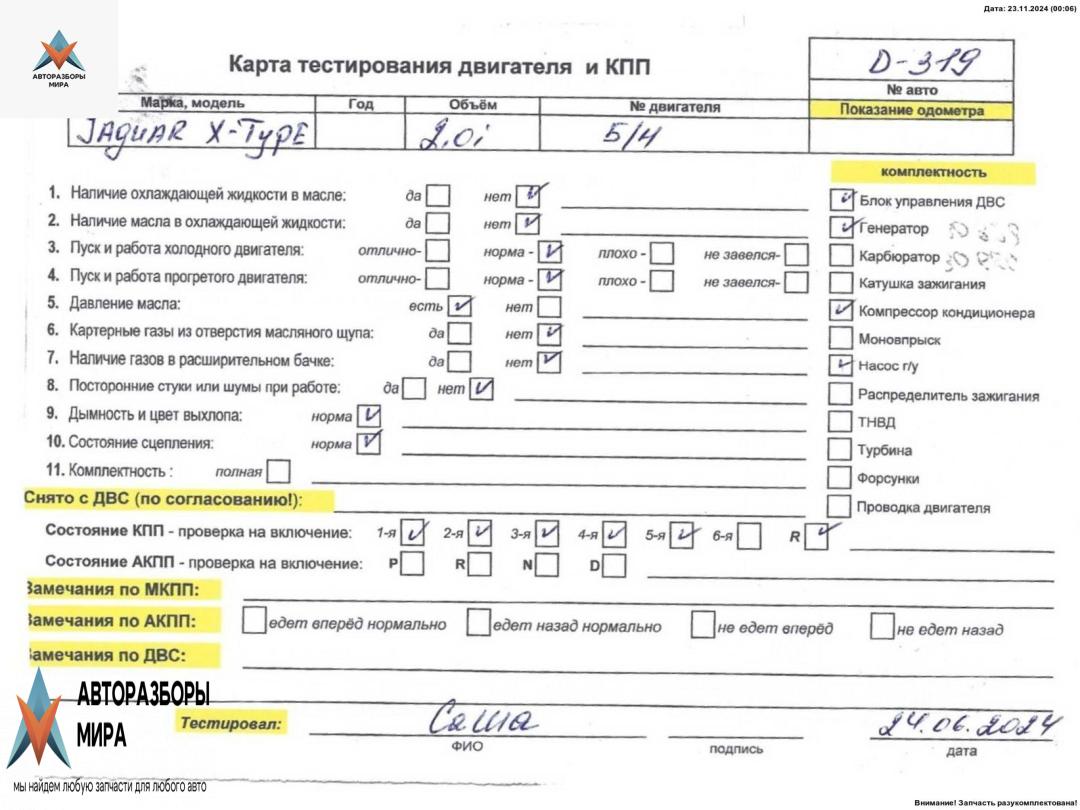 Дата: 23.11.2024 (00:06)
АВТОРАЗБОРЫ
МИРА
Карта тестирования двигателя и КПП
D-319
№ авто
Марка, модель Год Объём № двигателя Показание одометра
JAGUAR X-TYPE 2.0i Б/Н
комплектность
1. Наличие охлаждающей жидкости в масле: да нет
Блок управления ДВС
2. Наличие масла в охлаждающей жидкости: да нет
Генератор
3. Пуск и работа холодного двигателя: отлично- норма - плохо - не завелся-
Карбюратор
4. Пуск и работа прогретого двигателя: отлично- норма - плохо - не завелся-
Катушка зажигания
5. Давление масла: есть нет
Компрессор кондиционера
6. Картерные газы из отверстия масляного щупа: да нет
Моновпрыск
7. Наличие газов в расширительном бачке: да нет
Насос г/у
8. Посторонние стуки или шумы при работе: да нет
Распределитель зажигания
9. Дымность и цвет выхлопа: норма
ТНВД
10. Состояние сцепления: норма
Турбина
11. Комплектность : полная
Форсунки
Снято с ДВС (по согласованию!):
Проводка двигателя
Состояние КПП - проверка на включение: 1-я 2-я 3-я 4-я 5-я 6-я R
Состояние АКПП - проверка на включение: P R N D
Замечания по МКПП:
Замечания по АКПП: едет вперёд нормально едет назад нормально не едет вперёд не едет назад
Замечания по ДВС:
АВТОРАЗБОРЫ
МИРА
мы найдем любую запчасти для любого авто
Тестировал: Саша 24.06.2024
ФИО подпись дата
Внимание! Запчасть разукомплектована!